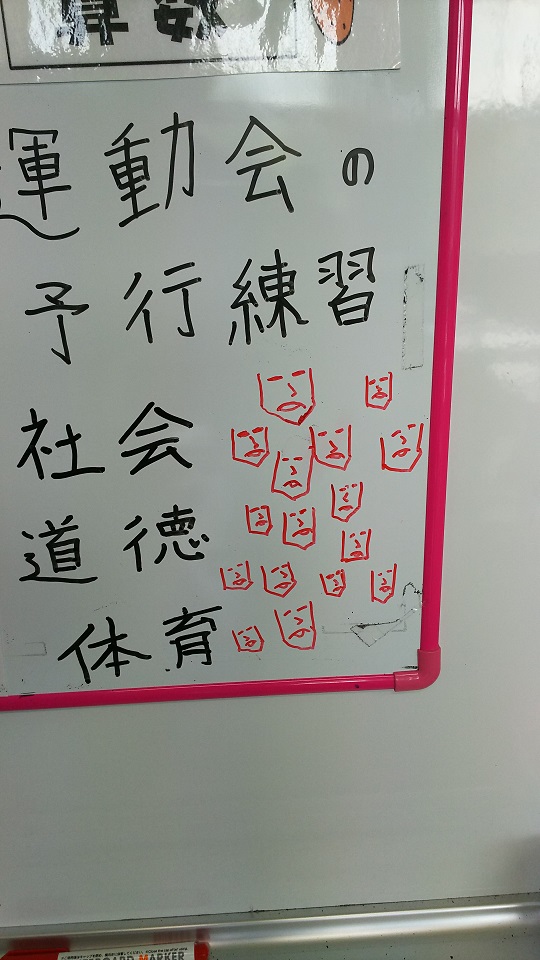 算数
運動会の
予行練習
社会
道徳
体育
BOARD MARKER